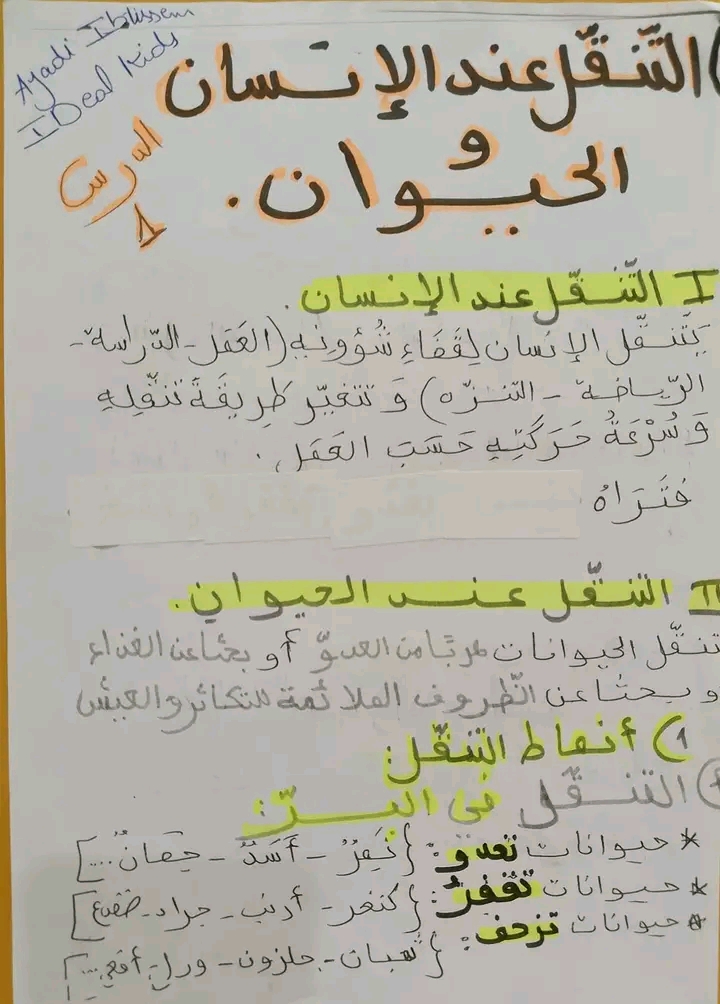 Ayadi Ibtissem
IDeal Kids
التّنقّل عند الإنسان
و
الحيوان.
الدرس
1
I التّنقّل عند الإنسان.
يَتَنقّل الإنسان لِقَضَاءِ شُؤُونِهِ (العَمَل - الدّراسة -
الرّياضة - التنزّه) وَ تتغيّر طَرِيقَةُ تنقّلِهِ
وَ سُرْعَةُ حَرَكَتِهِ حَسَبَ العَمَل.
فَتَرَاهُ
II التنقّل عند الحيوان.
تنقّل الحيوانات هربًا من العدوّ أو بحثا عن الغذاء
و بحثًا عن الظّروف الملائمة للتكاثر و العيش
1) أنماط التنقّل:
أ) التنقّل في البرّ:
* حيوانات تعدو: {نَمِرٌ - أَسَدٌ - حِصَانٌ...]
* حيوانات تقفزُ: {كنغر - أرنب - جراد - ضفدع]
* حيوانات تزحف:
{ثعبان - حلزون - ورل - أفعى...]